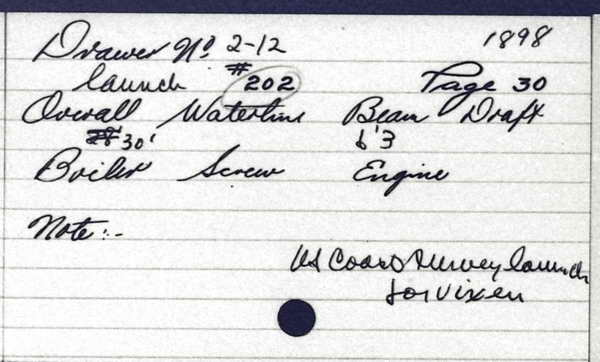 Drawer No 2-12 1898
launch #202 Page 30
Overall Waterline Beam Draft
30' 6'3
Boiler Screw Engine
Note:-
US Coast Survey launch
for Vixen